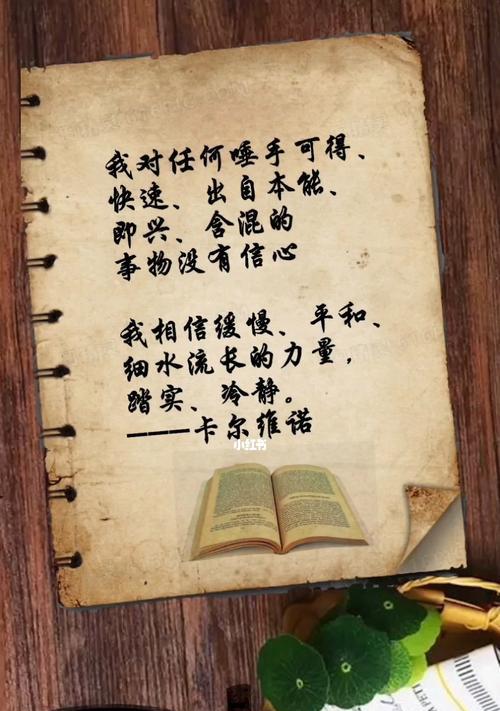 我对任何唾手可得、
快速、出自本能、
即兴、含混的
事物没有信心
我相信缓慢、平和、
细水流长的力量，
踏实、冷静。
———卡尔维诺
小红书